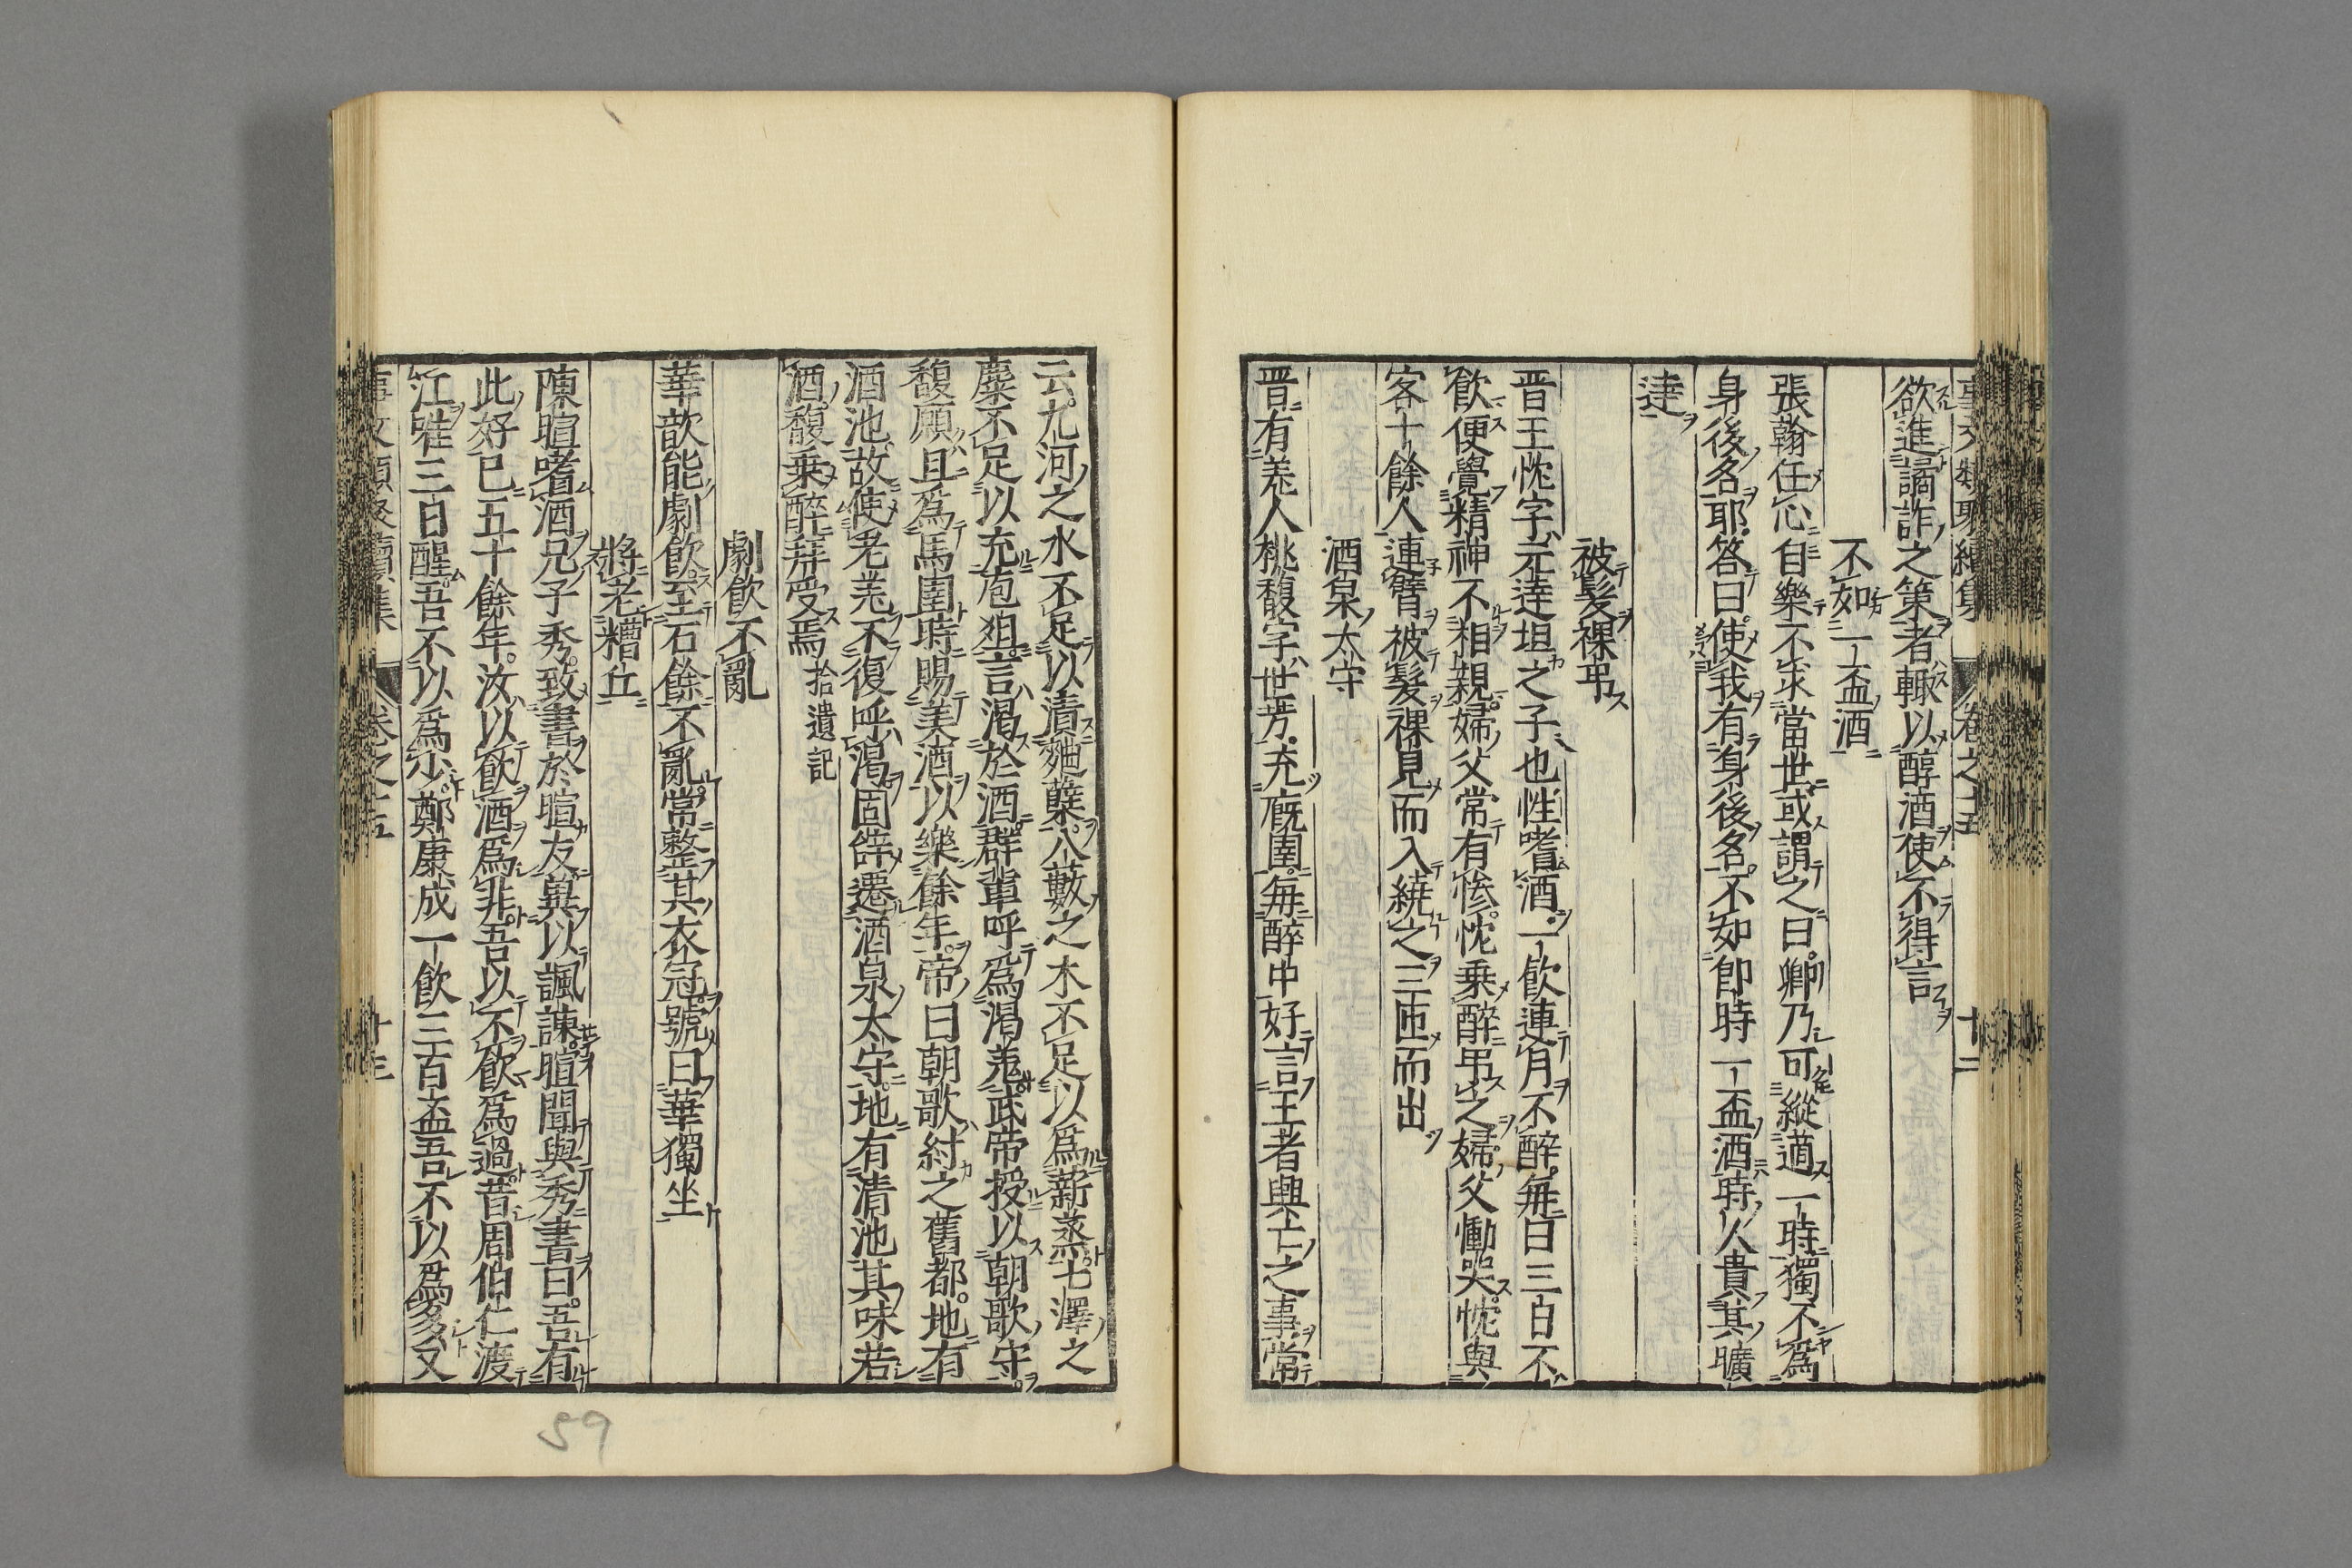 欲進譎詐之策者輙以醇酒使不得言
不如一盃酒
張翰任心自樂不求當世或謂之曰卿乃可縱適一時獨不爲
身後名耶答曰使我有身後名不如即時一盃酒時人貴其曠
達
被髮裸弔
晋王忱字元達坦之子也性嗜酒一飲連月不醉每曰三日不
飲便覺精神不相親婦父常有惨忱乗醉弔之婦父慟哭忱與
客十餘人連臂被髮裸見而入繞之三匝而出
酒泉太守
晋有羌人桃馥字世芳充廐圉每醉中好言王者興亡之事常
云九河之水不足以漬麹蘖八藪之木不足以爲薪蒸七澤之
麋不足以充庖俎言渇於酒群輩呼爲渇羌武帝授以朝歌守
馥願且爲馬圉時賜美酒以樂餘年帝曰朝歌紂之舊都地有
酒池故使老羌不復呼渇固辞遷酒泉太守地有清池其味若
酒馥乗醉拜受焉 拾遺記
劇飲不亂
華歆能劇飲至石餘不亂常整其衣冠號曰華獨坐
將老糟丘
陳暄嗜酒兄子秀致書於暄友兾以諷諫暄聞與秀書曰吾有
此好已五十餘年汝以飲酒爲非吾以不飲爲過昔周伯仁渡
江唯三日醒吾不以爲少鄭康成一飲三百盃吾不以爲多又
事文類聚續集 卷之十五 十三